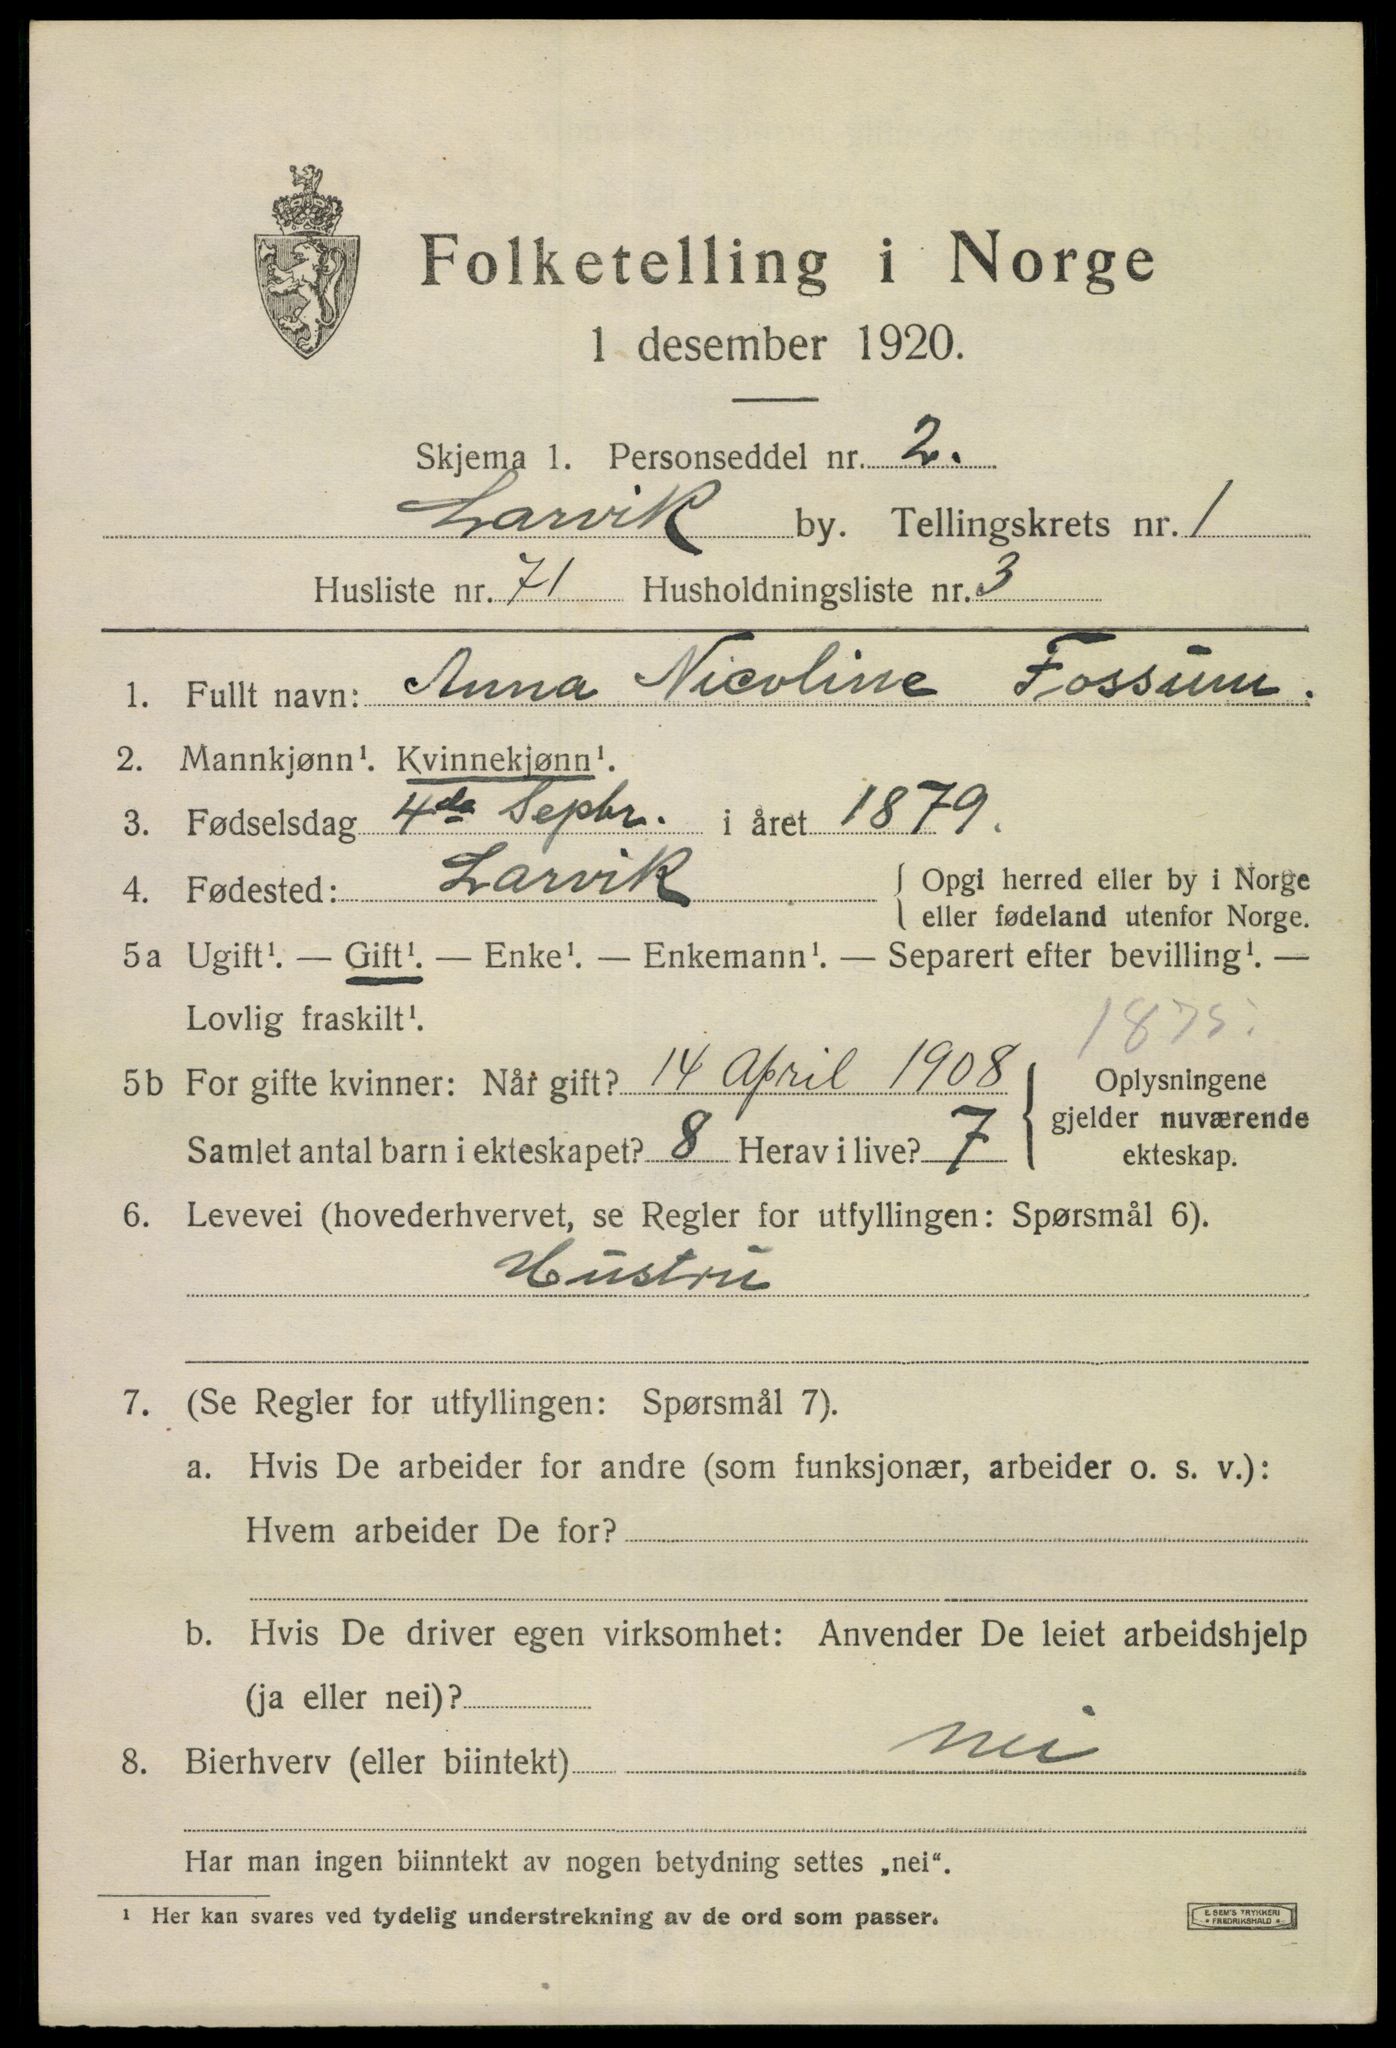 Folketelling i Norge
1 desember 1920.
Skjema 1. Personseddel nr. 2.
Larvik by. Tellingskrets nr. 1
Husliste nr. 71 Husholdningsliste nr. 3
1. Fullt navn: Anna Nicoline Fossum.
2. Mannkjønn¹. Kvinnekjønn¹.
3. Fødselsdag 4de Sepbr. i året 1879.
4. Fødested: Larvik { Opgi herred eller by i Norge
eller fødeland utenfor Norge.
5a Ugift¹. — Gift¹. — Enke¹. — Enkemann¹. — Separert efter bevilling¹. —
Lovlig fraskilt¹.
1875.
5b For gifte kvinner: Når gift? 14 April 1908 { Oplysningene
gjelder nuværende
Samlet antal barn i ekteskapet? 8 Herav i live? 7 ekteskap.
6. Levevei (hovederhvervet, se Regler for utfyllingen: Spørsmål 6).
Hustru
7. (Se Regler for utfyllingen: Spørsmål 7).
a. Hvis De arbeider for andre (som funksjonær, arbeider o. s. v.):
Hvem arbeider De for?
b. Hvis De driver egen virksomhet: Anvender De leiet arbeidshjelp
(ja eller nei)?
8. Bierhverv (eller biintekt) nei
Har man ingen biinntekt av nogen betydning settes „nei“.
¹ Her kan svares ved tydelig understrekning av de ord som passer.
E. SEM'S TRYKKERI
* FREDRIKSHALD *